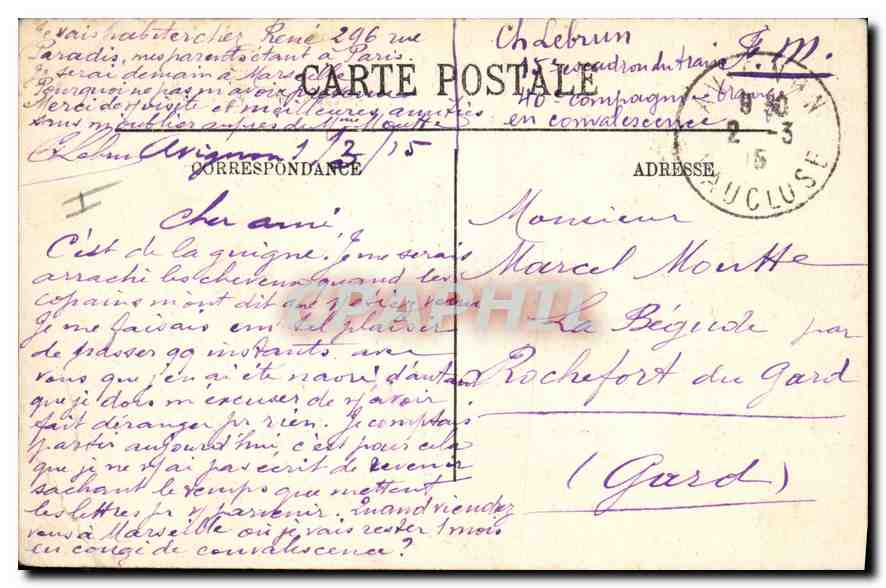 Je vais habiter cher René 296 rue
Paradis, mes parents étant à Paris.
Je serai demain à Marseille
Pourquoi ne pas m'avoir
Merci de visite et meilleures amitiés
sans m'oublier auprès de Mme Moutte
CLebrun Avignon 1/3/15
Ch Lebrun
15e escadron du train
40e compagnie
en convalescence
F.M.
CARTE POSTALE
CORRESPONDANCE
ADRESSE
AVIGNON
9 30
2 - 3
15
VAUCLUSE
Cher ami,
C'est de la guigne. Je me serais
arraché les cheveux quand les
copains m'ont dit que
Je me faisais un tel plaisir
de passer qq instants avec
vous que j'en ai été navré, d'autant
que je dois m'excuser de v/avoir
fait déranger pr rien. Je comptais
partir aujourd'hui, c'est pour cela
que je ne v/ai pas écrit de revenir
sachant le temps que mettent
les lettres pr v/ parvenir. Quand viendez
vous à Marseille où je vais rester 1 mois
en congé de convalescence ?
Monsieur
Marcel Moutte
La Bégude par
Rochefort du Gard
(Gard)
CPAPHIL